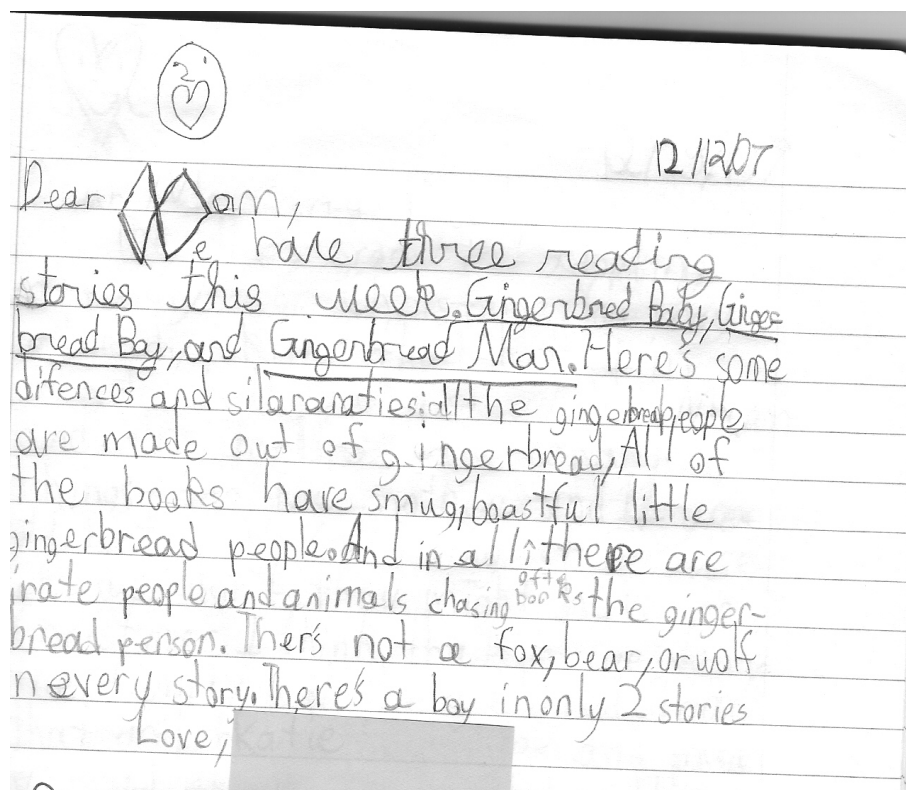 12/12/07
Dear Mom,
We have three reading
stories this week. Gingerbred Baby, Ginger
bread Boy, and Gingerbread Man. Here's some
difences and silararaties: all the gingerbreadpeople
are made out of gingerbread, All of
the books have smug, boastful little
gingerbread people. And in all there are
irate people and animals chasing the ginger-
of the
books
bread person. Ther's not a fox, bear, or wolf
n every story. There's a boy in only 2 stories
Love,